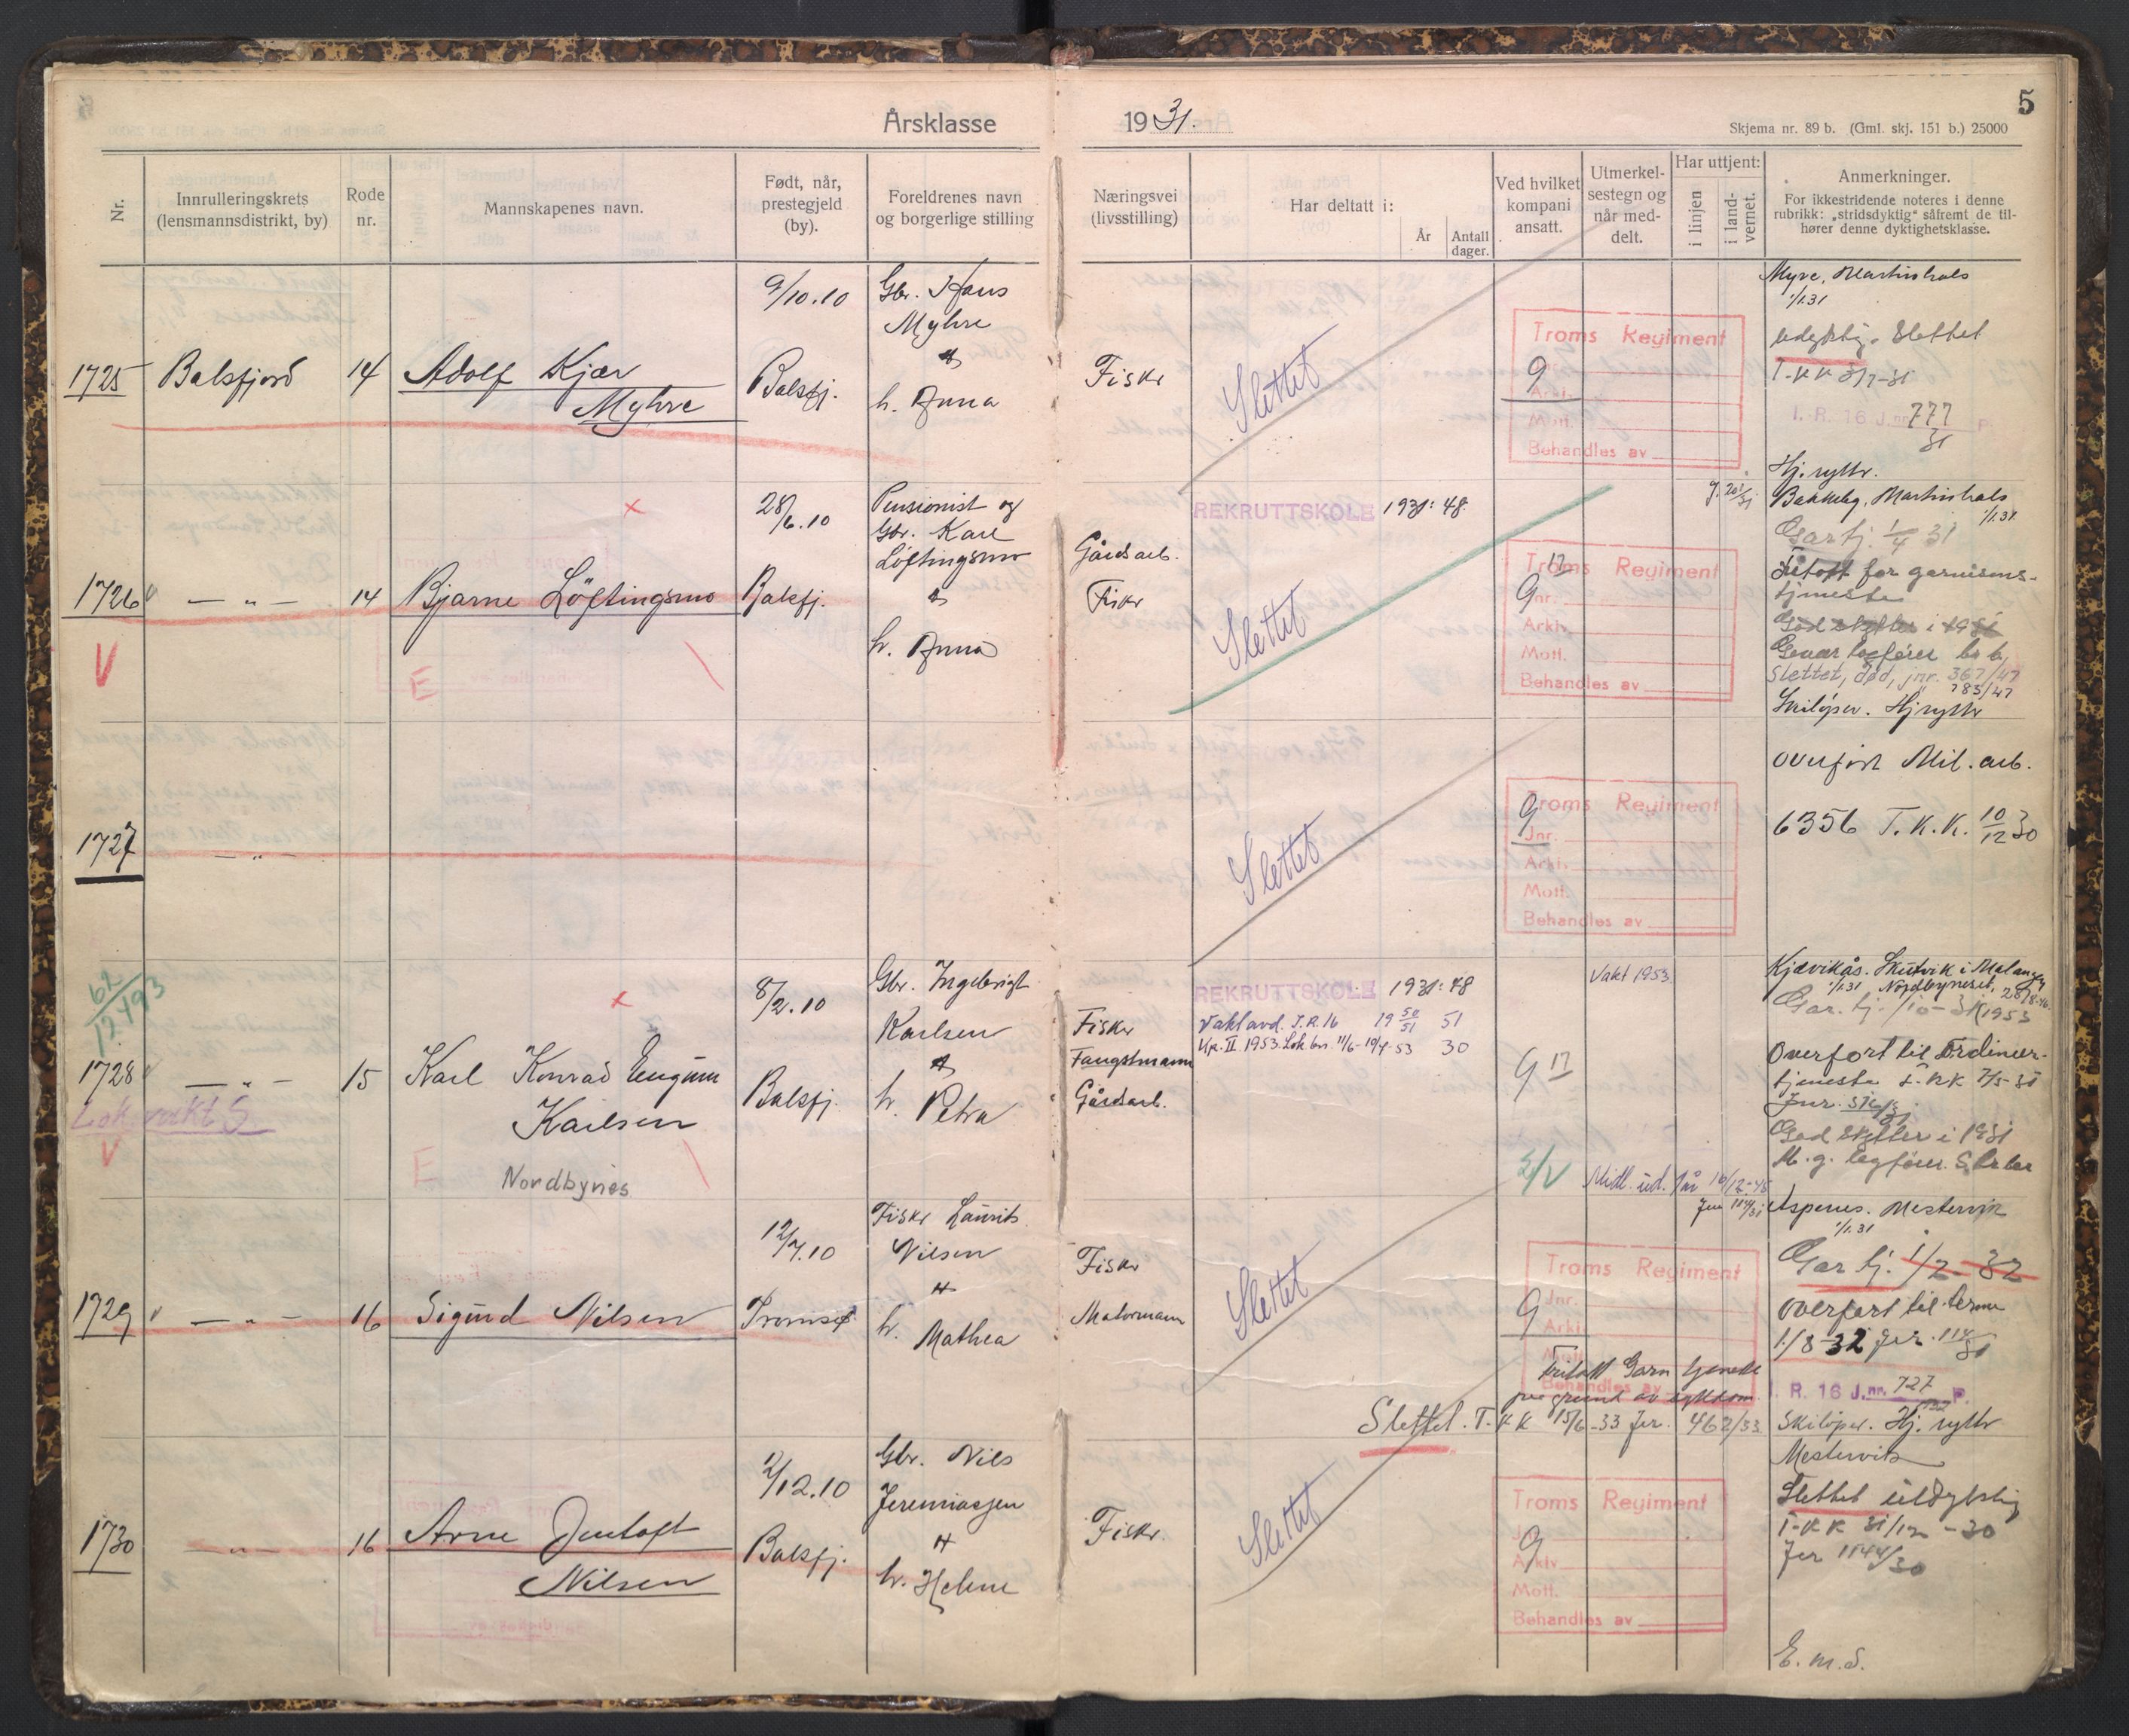 Årsklasse 1931.
5
Skjema nr. 89 b. (Gml. skj. 151 b.) 25000
Nr.
Innrulleringskrets
(lensmannsdistrikt, by)
Rode
nr.
Mannskapenes navn.
Født, når,
prestegjeld
(by).
Foreldrenes navn
og borgerlige stilling
Næringsvei
(livsstilling)
Har deltatt i:
År
Antall
dager.
Ved hvilket
kompani
ansatt.
Utmerkel-
sestegn og
når med-
delt.
Har uttjent:
i linjen
i land-
vernet.
Anmerkninger.
For ikkestridende noteres i denne
rubrikk: „stridsdyktig“ såfremt de til-
hører denne dyktighetsklasse.
1725
Balsfjord
14
Adolf Kjær
Myhre
9/10.10
Balsfj.
Gbr. Hans
Myhre
h. Anna
Fisker
Slettet
Troms Regiment
9
Arkiv
Mott.
Behandles av
Myre, Martinhals
1/1.31
udyktig. Slettet
T-KK
I. R. 16 J.nr. 777 P.
31
Hj. ryttr.
1726
— „ —
14
Bjarne Löftingsmo
28/6.10
Balsfj.
Pensionist og
Gbr. Karl
Löftingsmo
h. Anna
Gårdsarb.
Fisker
REKRUTTSKOLE 1931: 48
Slettet
Troms Regiment
12
9
Jnr.
Arkiv
Mott.
Behandles av
Bakkeby, Martinhals
1/1.31
Garntj. 1/4 31
Fritatt for garnisons-
tjeneste
God skytter i 1931
Gevær lagfører
Slettet, død, jnr. 367/47
783/47
Skiløper. Hj ryttr
V
E
1727
— „ —
Slettet
Troms Regiment
9
Jnr.
Arkiv
Mott.
Behandles av
overført Mil. arb.
6356 T.K.K. 10/12 30
62/12493
1728
— „ —
Lok.vakt S
V
15
Karl Konrad Eugen
Karlsen
E
Nordbynes
8/2.10
Balsfj.
Gbr. Ingebrigt
Karlsen
h. Petra
Fisker
Fangstmann
Gårdsarb.
REKRUTTSKOLE 1931: 48
Vaktavd. I.R. 16 19 50/51 51
Kp. II 1953. Lok bn. 11/6-10/7-53 30
9 17
Vakt 1953
Kjævikås. Skutvik i Malangen
1/1.31 Nordbyneset,
Overført til Ordinær-
tjeneste T-KK 7/5-31
God skytter i 1931
M.g. lagfører
Midl. ud. 1 år 16/12-48
1729
— „ —
16
Sigurd Nilsen
12/7.10
Tromsø
Fisker Laurits
Nilsen
h. Mathea
Fisker
Motormann
Slettet
Troms Regiment
9
Jnr.
Arkiv
Mott.
Behandles av
Aspenes. Mestervik
1/1.31
Gar tj. 1/2-32
Overført til term
1/8 32
Fritatt Garn tjeneste
på grund av sykdom
Slettet. T-KK 15/6-33 Jnr. 462/33
I. R. 16 J.nr. 727 P.
Skiløper. Hj. ryttr
1730
— „ —
16
Arne Jentoft
Nilsen
2/12.10
Balsfj.
Gbr. Nils
Jeremiassen
h. Helene
Fisker.
Slettet
Troms Regiment
9
Arkiv
Mott.
Behandles av
Mestervik
Slettet udyktig
T-KK 31/12-30
Jnr 1144/30
E.m.S.